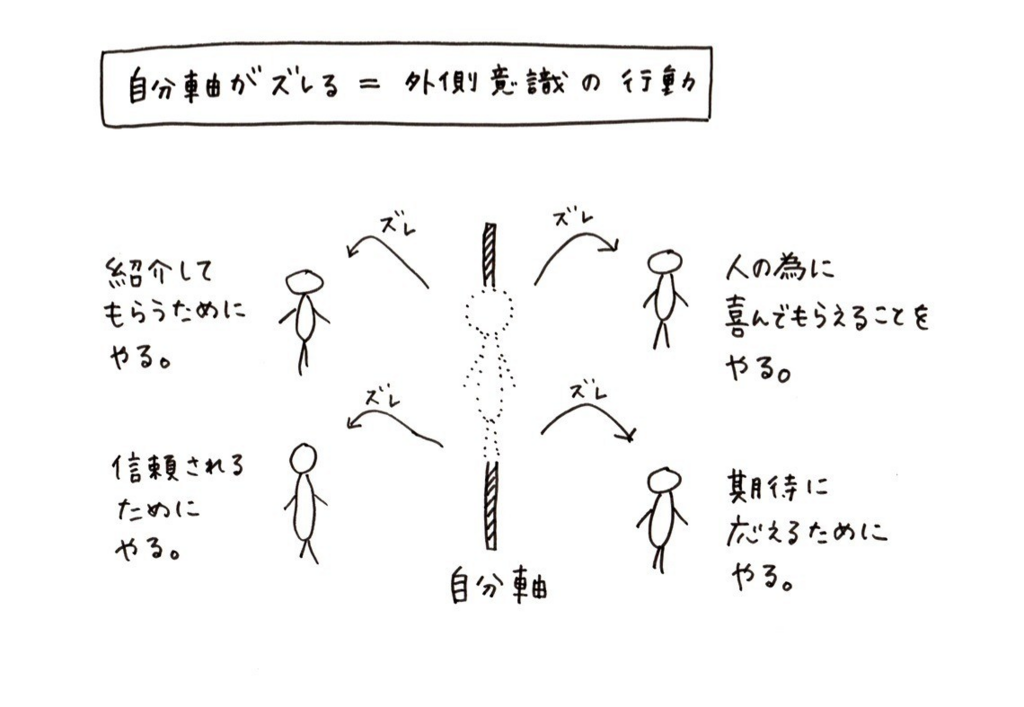 自分軸がズレる = 外側意識の行動
ズレ
ズレ
紹介して
もらうために
やる。
人の為に
喜んでもらえることを
やる。
ズレ
ズレ
信頼される
ために
やる。
期待に
応えるために
やる。
自分軸